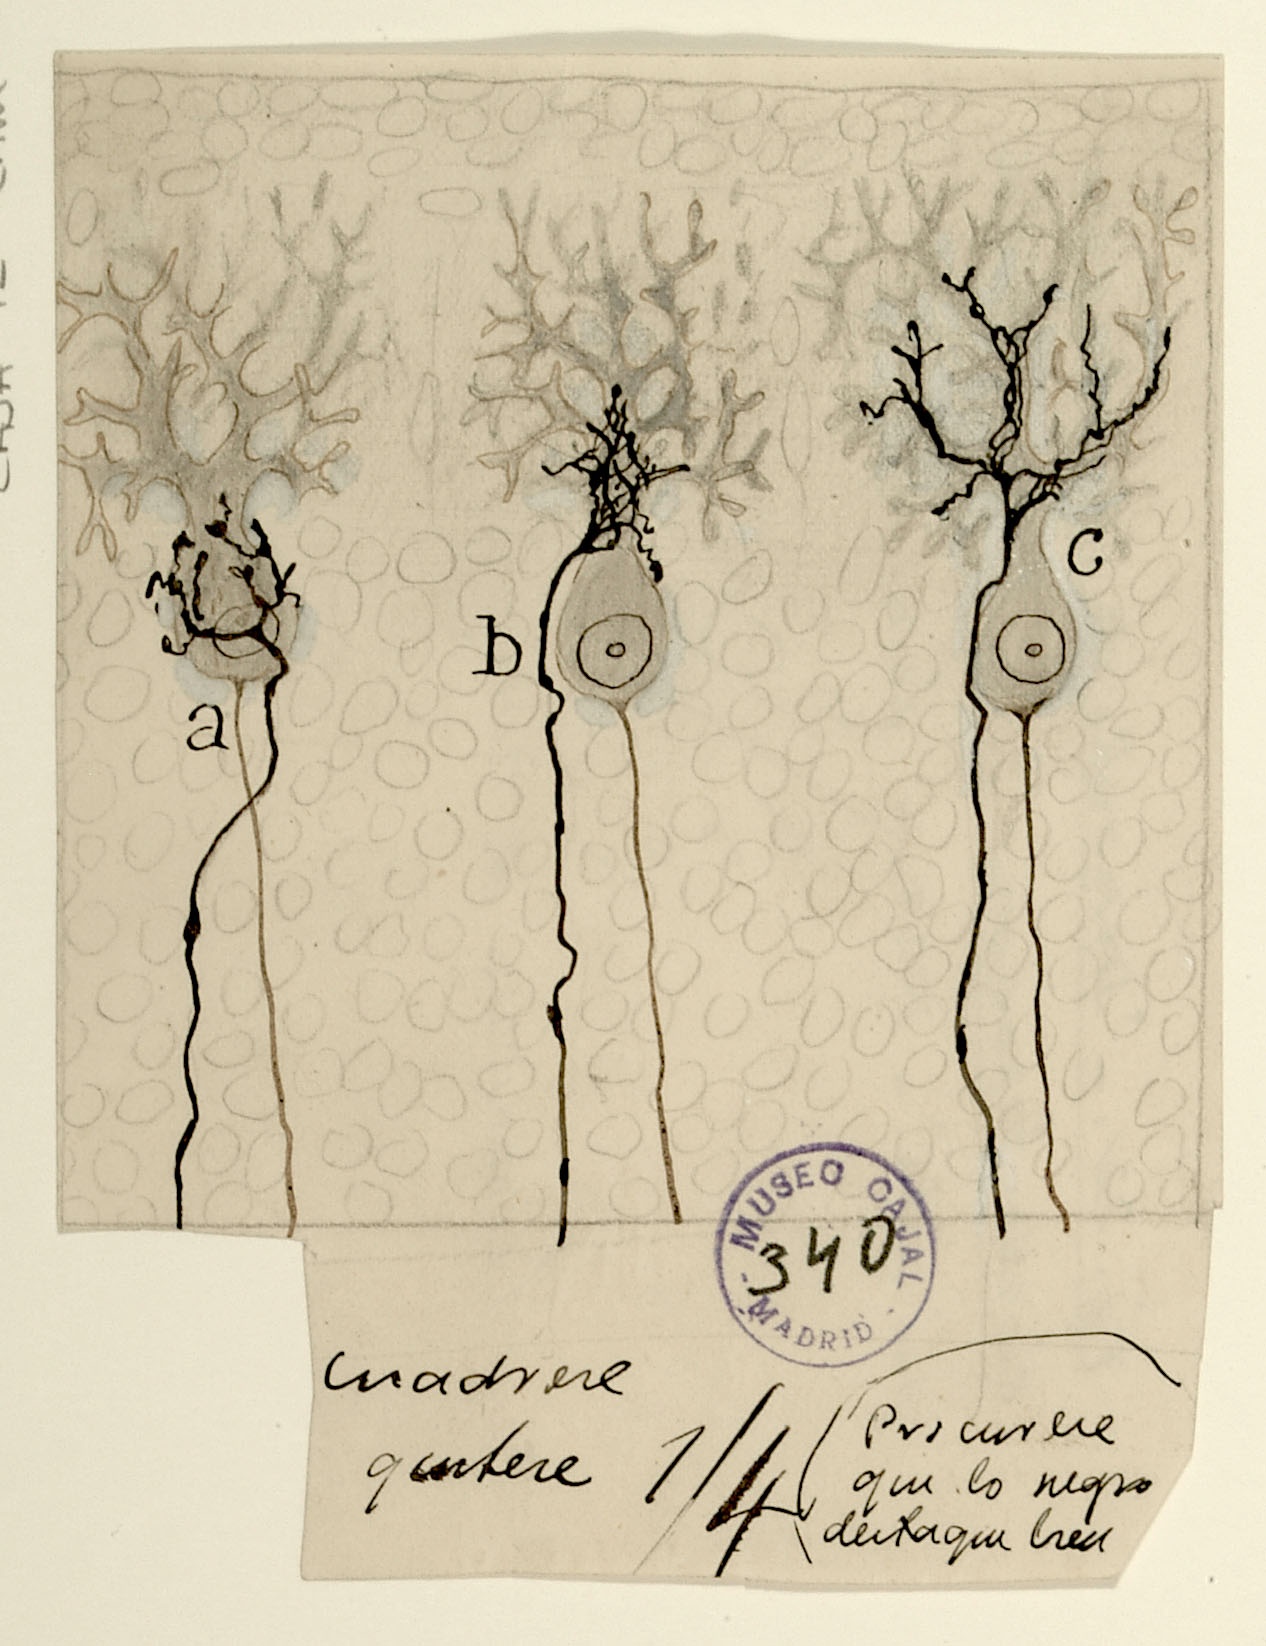 a
b
c
MUSEO CAJAL
340
- MADRID -
Cuadrese
quitese 1/4
Procurese
que lo negro
destaque bien